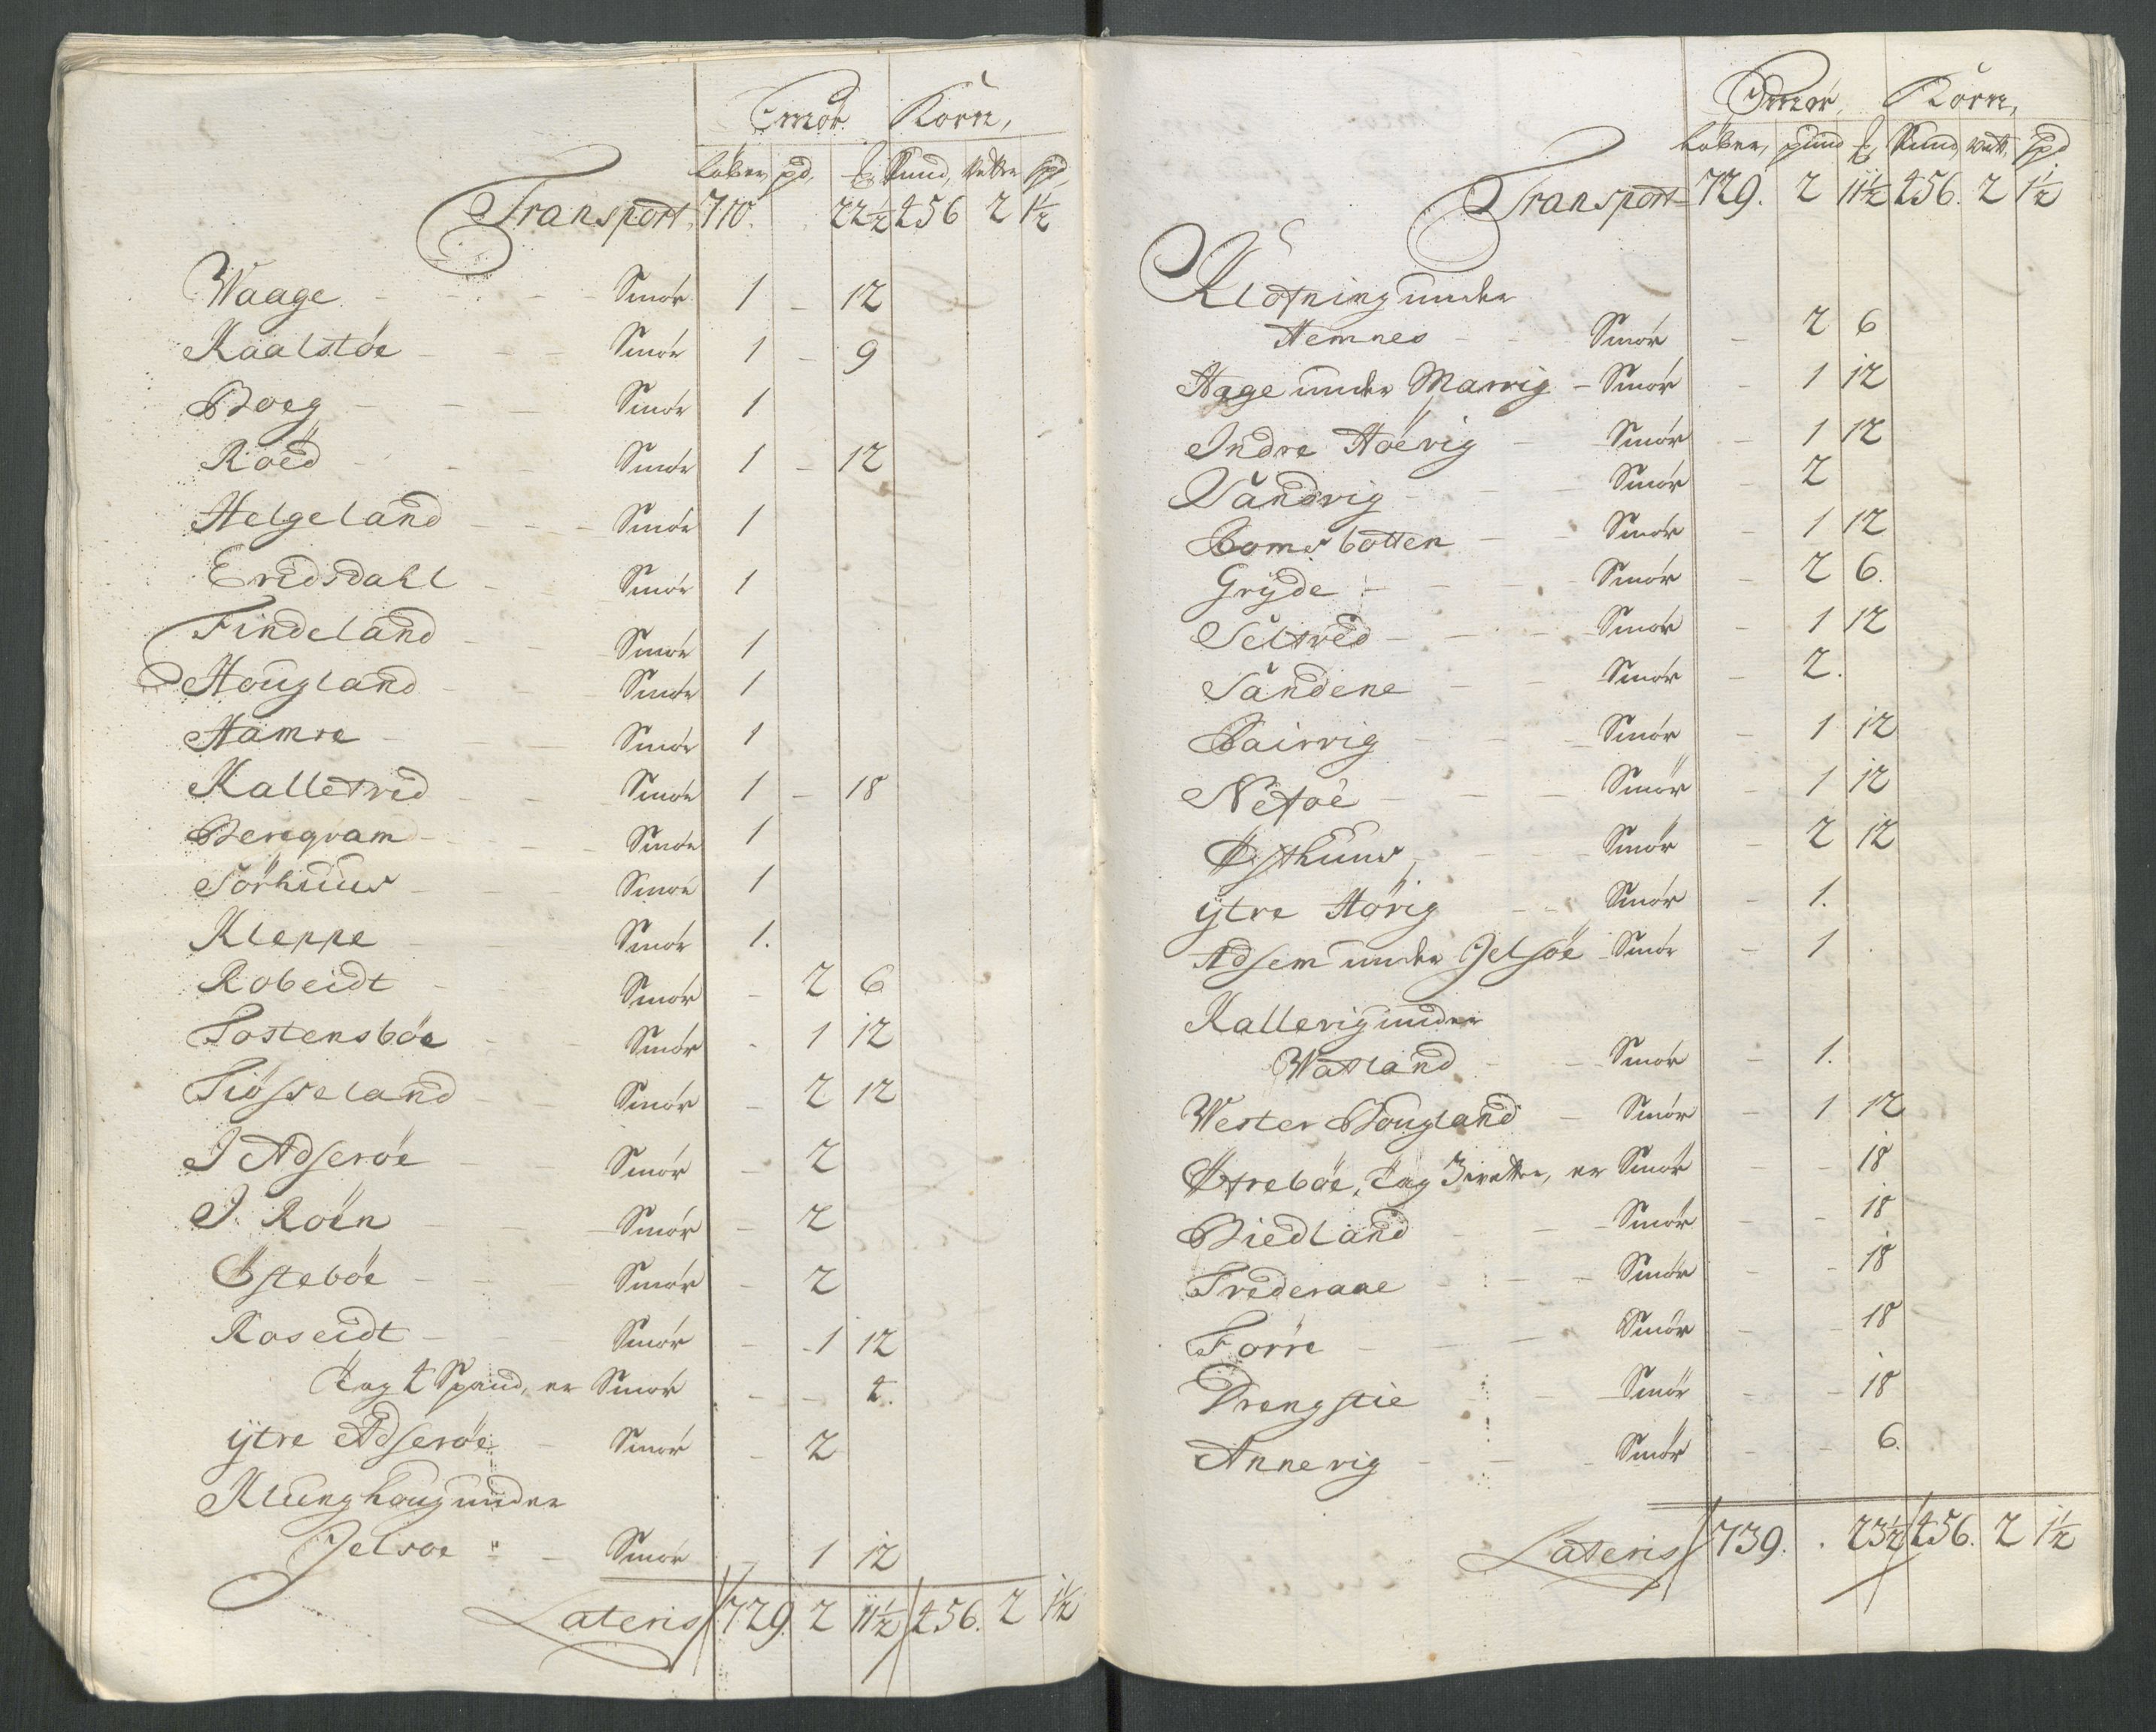 Smör. Korn,
Löber, pd, ℔ Pund, Vetter Spd,
Transport, 710. 22½ 456 2 1½
Waage Smör 1 - 12
Kaalstöe Smör 1 - 9
Boeg Smör 1
Röed Smör 1 - 12
Helgeland Smör 1
Eridsdahl Smör 1
Findeland Smör 1
Hougland Smör 1
Hamre Smör 1
Kalletvid Smör 1 - 18
Bereqvam Smör 1
Sörhuus Smör 1
Kleppe Smör 1.
Robeidt Smör - 2 6
Tostensböe Smör - 1 12
Tiösseland Smör - 2 12
I Adseröe Smör - 2
I. Röen Smör - 2
Östeböe Smör - 2
Roseidt Smör - 1 12
Tag 4 Spand, er Smör - - 4.
ÿtre Adseröe Smör - 2
Klunghoug under
Jelsöe Smör - 1 12
Lateris 729. 2 11½ 456. 2 1½
Smör, Korn,
Löber, pund ℔, Pund, Vett, Spd
Transport 729. 2 11½ 456. 2 1½
Klofning under
Hemnes Smör - 2 6
Hage under Marvig - Smör - 1 12
Indre Höevig Smör - 1 12
Sandvig Smör - 2
Bomsbotten Smör - 1 12
Grÿde Smör - 2 6.
Seltved Smör - 1 12
Sandene Smör - 2.
Bairvig Smör - 1 12
Netöe Smör - 1 12
Østhuus Smör - 2 12
ÿtre Hövig Smör - 1.
Adsem under Jelsöe Smör - 1
Kallevig under
Watland Smör - 1.
Wester Bougland Smör - 1 12
Øtreböe, Tag 3 vetter, er Smör - - 18
Biedland Smör - - 18
Frederaae Smör - - 18
Förre Smör - - 18
Drengstie Smör - - 18
Annevig Smör - - 6.
Lateris 739. . 23½ 456. 2 1½